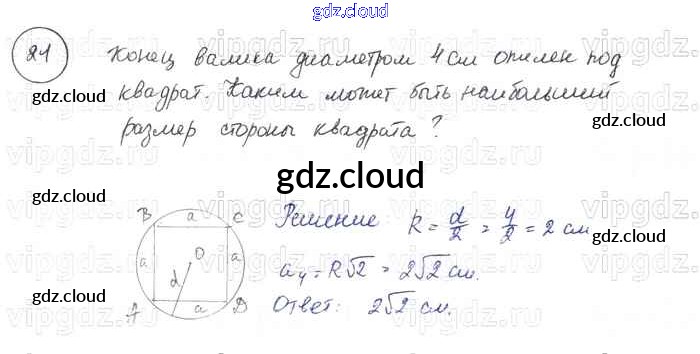 gdz.cloud
21 Конец валика диаметром 4 см опилен под
квадрат. Каким может быть наибольший
размер стороны квадрата?
gdz.cloud
gdz.cloud
gdz.cloud
gdz.cloud
B a C
a O a
d
A a D
Решение R = d/2 = 4/2 = 2 см
a₄ = R√2 = 2√2 см.
Ответ: 2√2 см.
gdz.cloud
gdz.cloud
vipgdz.ru
vipgdz.ru
vipgdz.ru